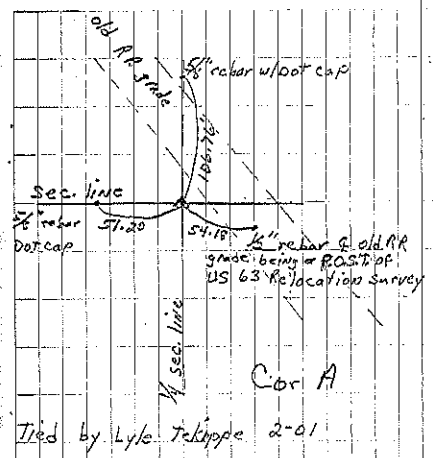 old R.R. grade
5/8" rebar w/Dot cap
106.76
Sec. line
5/8" rebar
Dot cap
51.20
54.18
1/2" rebar ¢ old RR
grade being a P.O.S.T. of
US 63 Relocation Survey
1/4 sec. line
Cor A
Tied by Lyle Tekippe 2-01